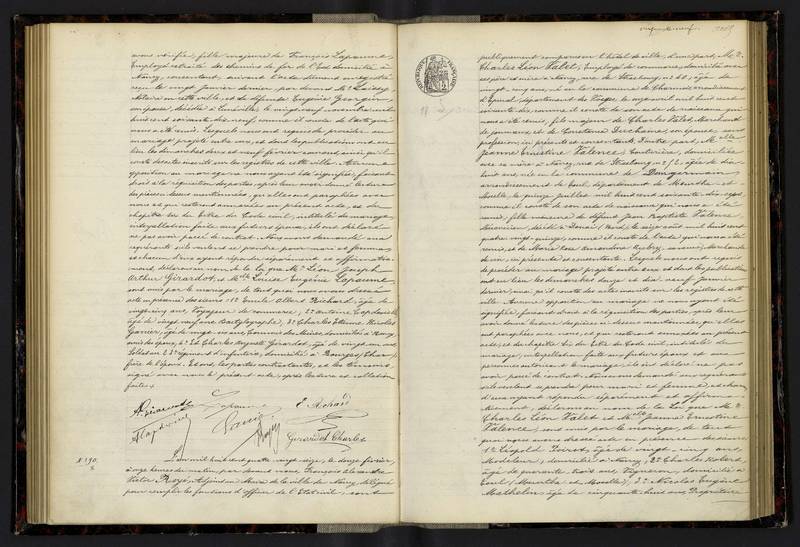 nous vérifiée, fille majeure de François Lapaume,
Employé retraité des chemins de fer de l'Est, domicilié à
Nancy, consentant, suivant l'acte dûment enregistré
reçu le vingt janvier dernier, par devant Me
Notaire en cette ville, et de défunte Eugénie Georgin,
son épouse, décédée à Lunéville, le vingt neuf novembre mil
huit cent soixante dix neuf, comme il conste de l'acte qui
nous a été remis. Lesquels nous ont requis de procéder au
mariage projeté entre eux, et dont les publications ont eu
lieu les dimanches deux et neuf février courant, ainsi qu'il
conste des actes inscrits sur les registres de cette ville. Aucune
opposition au mariage ne nous ayant été signifiée, faisant
droit à la réquisition des parties, après leur avoir donné lecture
des pièces dessus mentionnées, qu'elles ont paraphées avec
nous et qui resteront annexées au présent acte, et du
chapitre six du titre du Code civil, intitulé du mariage,
interpellation faite aux futurs époux, ils ont déclaré
ne pas avoir passé de contrat. Nous avons demandé aux
représentés s'ils veulent se prendre pour mari et femme
et chacun d'eux ayant répondu séparément et affirmative-
ment, déclarons au nom de la loi que Mr Léon Joseph
Arthur Girardot, et Melle Louise Eugénie Lapaume
sont unis par le mariage, de tout quoi nous avons dressé
acte en présence des sieurs: 1° Emile Albert Richard, âgé de
vingt cinq ans, Voyageur de commerce, 2° Antoine Capdeville
âgé de vingt neuf ans, Cartographe, 3° Charles Etienne Nicolas
Garnier, âgé de vingt six ans, Commis des Mines, domiciliés à Nancy,
amis des époux, 4° Et Charles Auguste Girardot, âgé de vingt un ans
Soldat au régiment d'infanterie, domicilié à Bourges (Cher),
frère de l'époux. Et ont, les parties contractantes, et les témoins,
signé avec nous le présent acte, après lecture et collation
faites.
A Girardot L Lapaume E Richard
Capdeville Garnier
Girardot Charles
N° 190.
L'an mil huit cent quatre vingt seize, le douze février,
à onze heures du matin, par devant nous, François Alexandre
Victor Roze, Adjoint au Maire de la ville de Nancy, délégué
pour remplir les fonctions d'officier de l'Etat civil, sont
RÉPUBLIQUE FRANÇAISE
publiquement comparus en l'hôtel de ville, d'une part, Mr
Charles Léon Valet, Employé de commerce, domicilié avec
ses père et mère à Nancy, rue de Strasbourg, n° 20, âgé de
vingt cinq ans, né en la commune de Charmois arrondissement
d'Epinal, département des Vosges, le
comme il conste de son acte de naissance qui
nous a été remis, fils majeur de Charles Valet, Marchand
de journaux, et de Constance Duchesne, son épouse, sans
profession, ici présents et consentants. D'autre part, Melle
Jeanne Ernestine Valence, Couturière, domiciliée
avec sa mère à Nancy, rue de Strasbourg, n° 2, âgée de dix
huit ans, née en la commune de Dongermain,
arrondissement de Toul, département de Meurthe et
Moselle, le quinze juillet mil huit cent soixante dix sept,
comme il conste de son acte de naissance qui nous a été
remis, fille mineure de défunt Jean Baptiste Valence,
décédé à Douai (Nord), le six août mil huit cent
quatre vingt quinze, comme il conste de l'acte qui nous a été
remis, et de Marie Rose Aubry, sa veuve, Marchande
de vin, ici présente et consentante. Lesquels nous ont requis
de procéder au mariage projeté entre eux et dont les publications
ont eu lieu les dimanches douze et dix neuf janvier
dernier, ainsi qu'il conste des actes inscrits sur les registres de cette
ville. Aucune opposition au mariage ne nous ayant été
signifiée, faisant droit à la réquisition des parties, après leur
avoir donné lecture des pièces ci dessus mentionnées, qu'elles
ont paraphées avec nous, et qui resteront annexées au présent
acte, et du chapitre six du titre du Code civil, intitulé du
mariage, interpellation faite aux futurs époux et aux
personnes autorisant le mariage, ils ont déclaré ne pas
avoir passé de contrat. Nous avons demandé aux représentés
s'ils veulent se prendre pour mari et femme, et chacun
d'eux ayant répondu séparément et affirmative-
ment, déclarons au nom de la loi que Mr
Charles Léon Valet et Melle Jeanne Ernestine
Valence, sont unis par le mariage, de tout
quoi nous avons dressé acte en présence des sieurs:
1° Léopold Poirot, âgé de vingt cinq ans,
Modeleur, domicilié à Nancy, 2° Charles Robert,
âgé de quarante trois ans, Vigneron, domicilié à
Toul (Meurthe et Moselle), 3° Nicolas Eugène
Mathelin, âgé de cinquante huit ans, Propriétaire